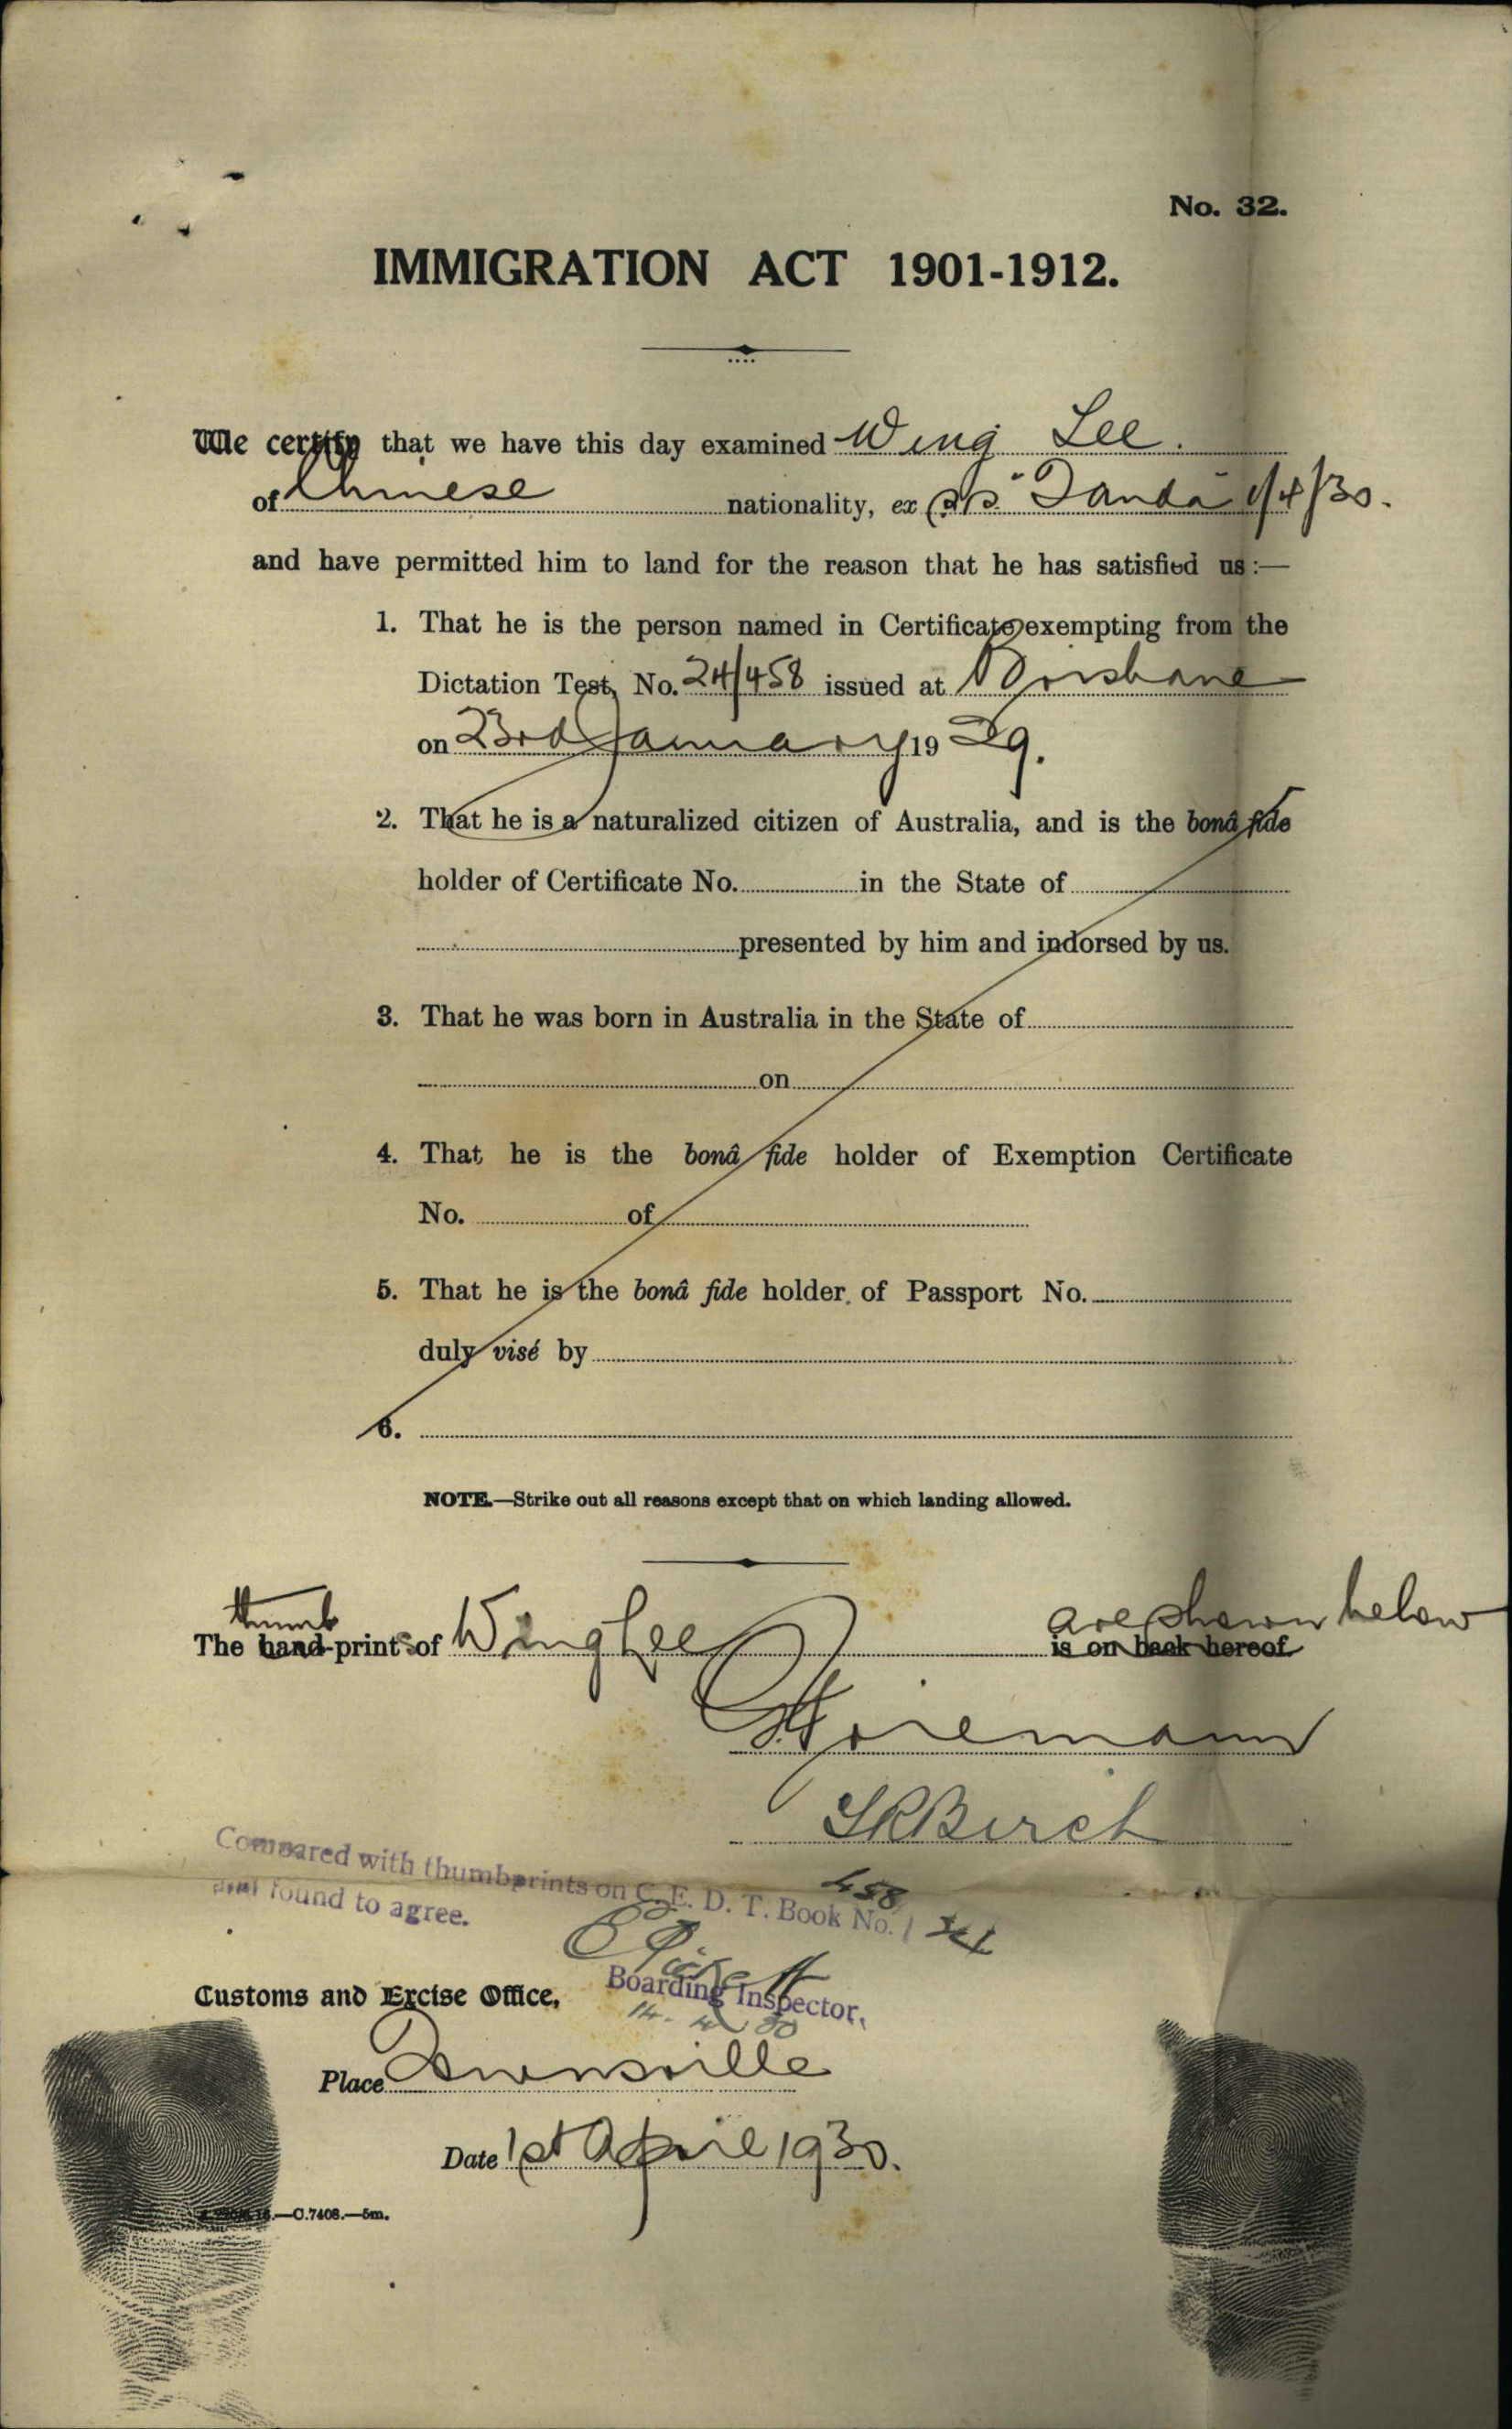 No. 32.
IMMIGRATION ACT 1901-1912.
We certify that we have this day examined Wing Lee.
of Chinese nationality, ex s/s "Tanda" 1/4/30.
and have permitted him to land for the reason that he has satisfied us:—
1. That he is the person named in Certificate exempting from the
Dictation Test, No. 24/458 issued at Brisbane
on 23rd January 1929.
2. That he is a naturalized citizen of Australia, and is the bonâ fide
holder of Certificate No. in the State of
presented by him and indorsed by us.
3. That he was born in Australia in the State of
on
4. That he is the bonâ fide holder of Exemption Certificate
No. of
5. That he is the bonâ fide holder of Passport No.
duly visé by
6.
NOTE.—Strike out all reasons except that on which landing allowed.
thumb are shown below
The hand-prints of Wing Lee is on back hereof
Boremann
SRBirch
Compared with thumbprints on C. E. D. T. Book No. 458
and found to agree.
Customs and Excise Office, Boarding Inspector,
14. 4 30
Place Townsville
Date 1st April 1930.
—C.7408.—5m.